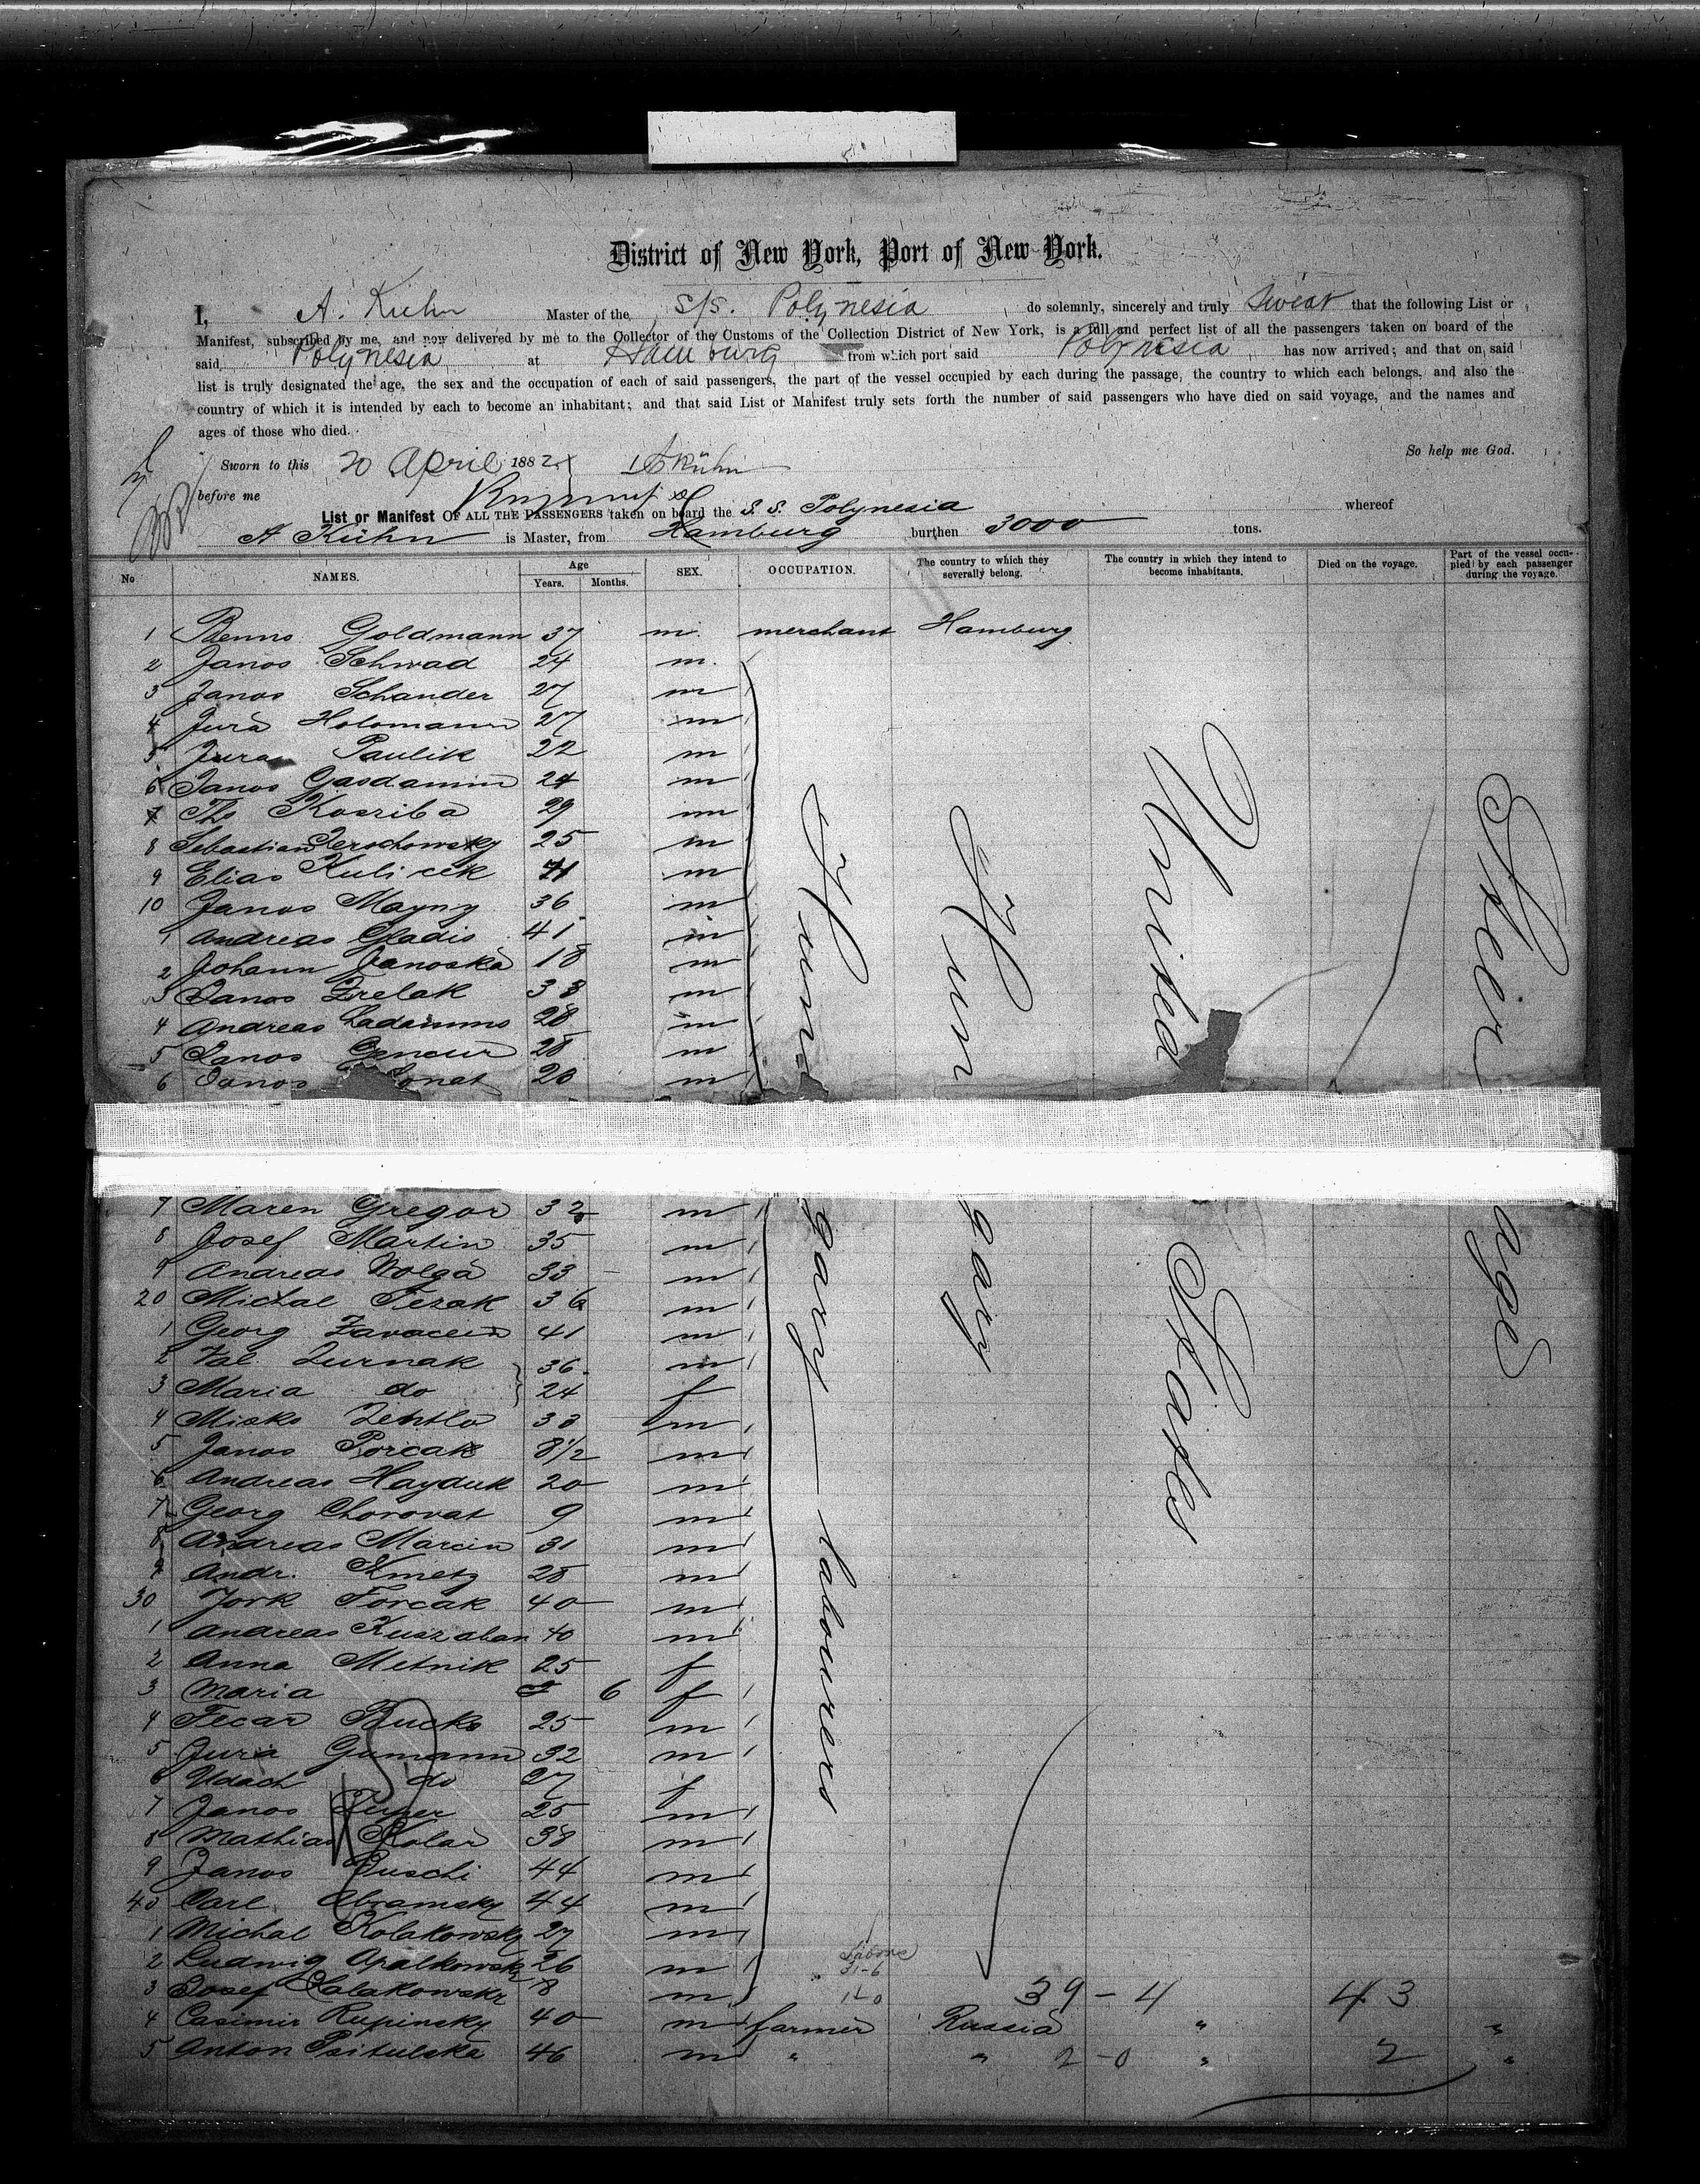 District of New York, Port of New York.
I, A. Kuhn Master of the s/s. Polynesia do solemnly, sincerely and truly swear that the following List or
Manifest, subscribed by me, and now delivered by me to the Collector of the Customs of the Collection District of New York, is a full and perfect list of all the passengers taken on board of the
said Polynesia at Hamburg from which port said Polynesia has now arrived; and that on said
list is truly designated the age, the sex and the occupation of each of said passengers, the part of the vessel occupied by each during the passage, the country to which each belongs, and also the
country of which it is intended by each to become an inhabitant; and that said List or Manifest truly sets forth the number of said passengers who have died on said voyage, and the names and
ages of those who died.
So help me God.
Sworn to this 20 April 1882 A Kühn
before me
List or Manifest OF ALL THE PASSENGERS taken on board the S. S. Polynesia whereof
A Kühn is Master, from Hamburg burthen 3000 tons.
No NAMES. Age Years. Months. SEX. OCCUPATION. The country to which they severally belong. The country in which they intend to become inhabitants. Died on the voyage. Part of the vessel occupied by each passenger during the voyage.
1 Benno Goldmann 37 m. merchant Hamburg
2 Janos Schwad 24 m.
3 Janos Schander 27 m
4 Jura Holomann 27 m
5 Jura Paulik 22 m
6 Janos 24 m
7 Ths Kosriba 29 m
8 Sebastian 25 m
9 Elias Kulicek m
10 Janos Mayny 36 m
1 Andreas Gladis 41 m
2 Johann Janoska 18 m
3 Janos Zrelak 38 m
4 Andreas 28 m
5 Janos Gencur 28 m
6 Janos 20 m
Hungary — labourers
Hungary
United States
Steerage
7 Maren Gregor 32 m
8 Josef Martin 35 m
9 Andreas Wolga 33 m
20 Michal Tezak 36 m
1 Georg 41 m
2 Val Zurnak 36 m
3 Maria do 24 f
4 Misko 33 m
5 Janos Porcak 8 1/2 m
6 Andreas Hayduk 20 m
7 Georg Chorovat 9 m
8 Andreas Marcin 31 m
9 Andr. Kmetz 28 m
30 Jork Torcak 40 m
1 Andreas Kuszaban 40 m
2 Anna Metnik 25 f
3 Maria 6 f
4 Fecar Bucko 25 m
5 Jura Gumann 32 m
6 Udach do 27 f
7 Janos 25 m
8 Mathias Kolar 38 m
9 Janos Duschi 44 m
40 Carl Abramsky 44 m
1 Michal Kolakowsky 27 m
2 Ludwig Opalkowsky 26 m
3 Josef Kolakowsky 8 m 39 - 4 43
4 Casimir Rupinsky 40 m farmer Russia " "
5 Anton Psitulska 46 m " " 2 - 0 " 2 "